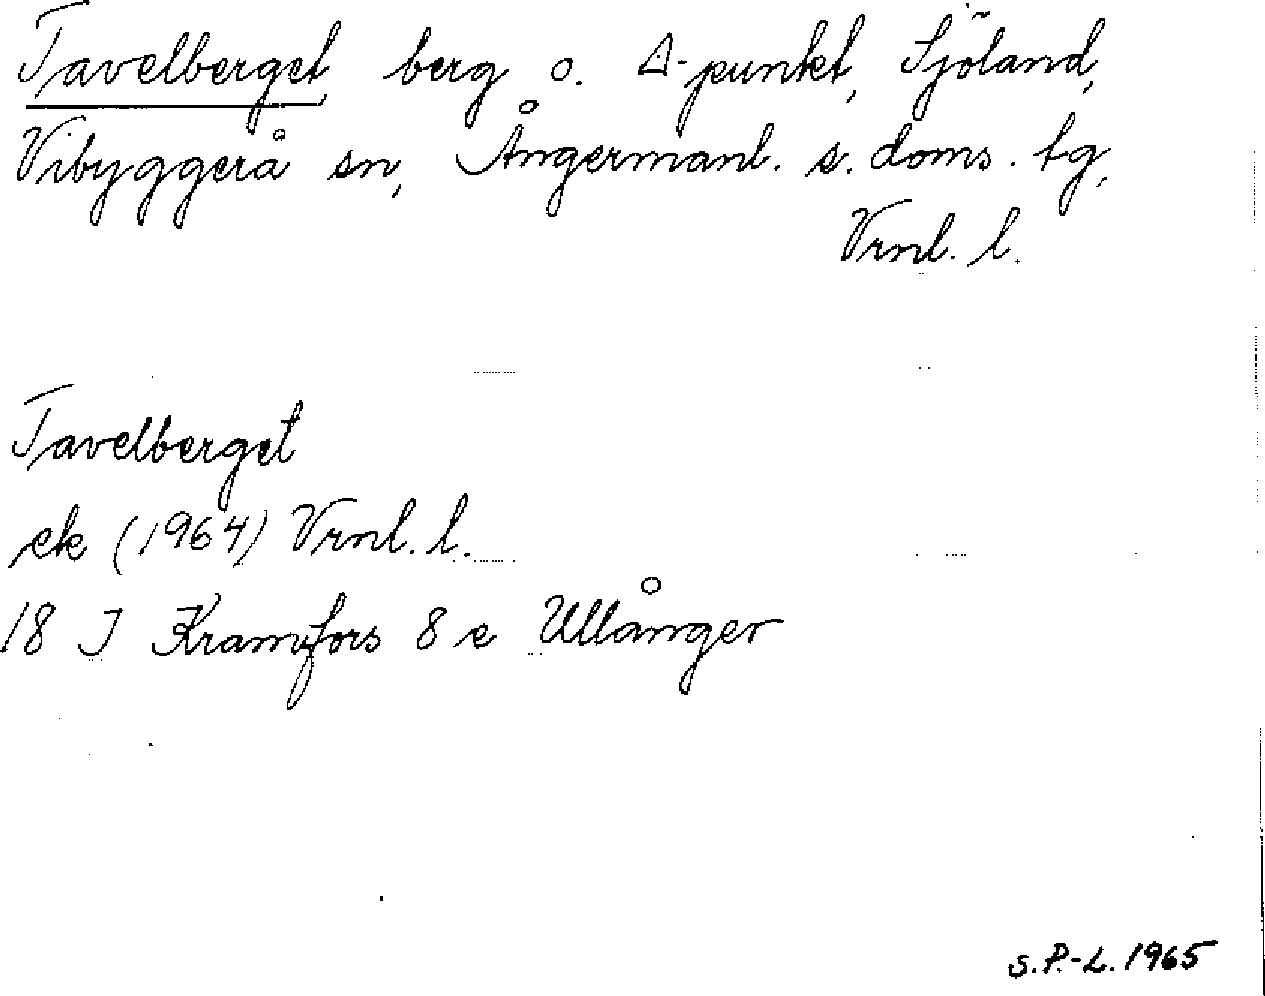 Tavelberget berg o. Δ-punkt, Sjöland,
Vibyggerå sn, Ångermanl. s. doms. tg,
Vrnl. l.
Tavelberget
ek (1964) Vrnl. l.
18 I Kramfors 8 e Ullånger
S. P.-L. 1965